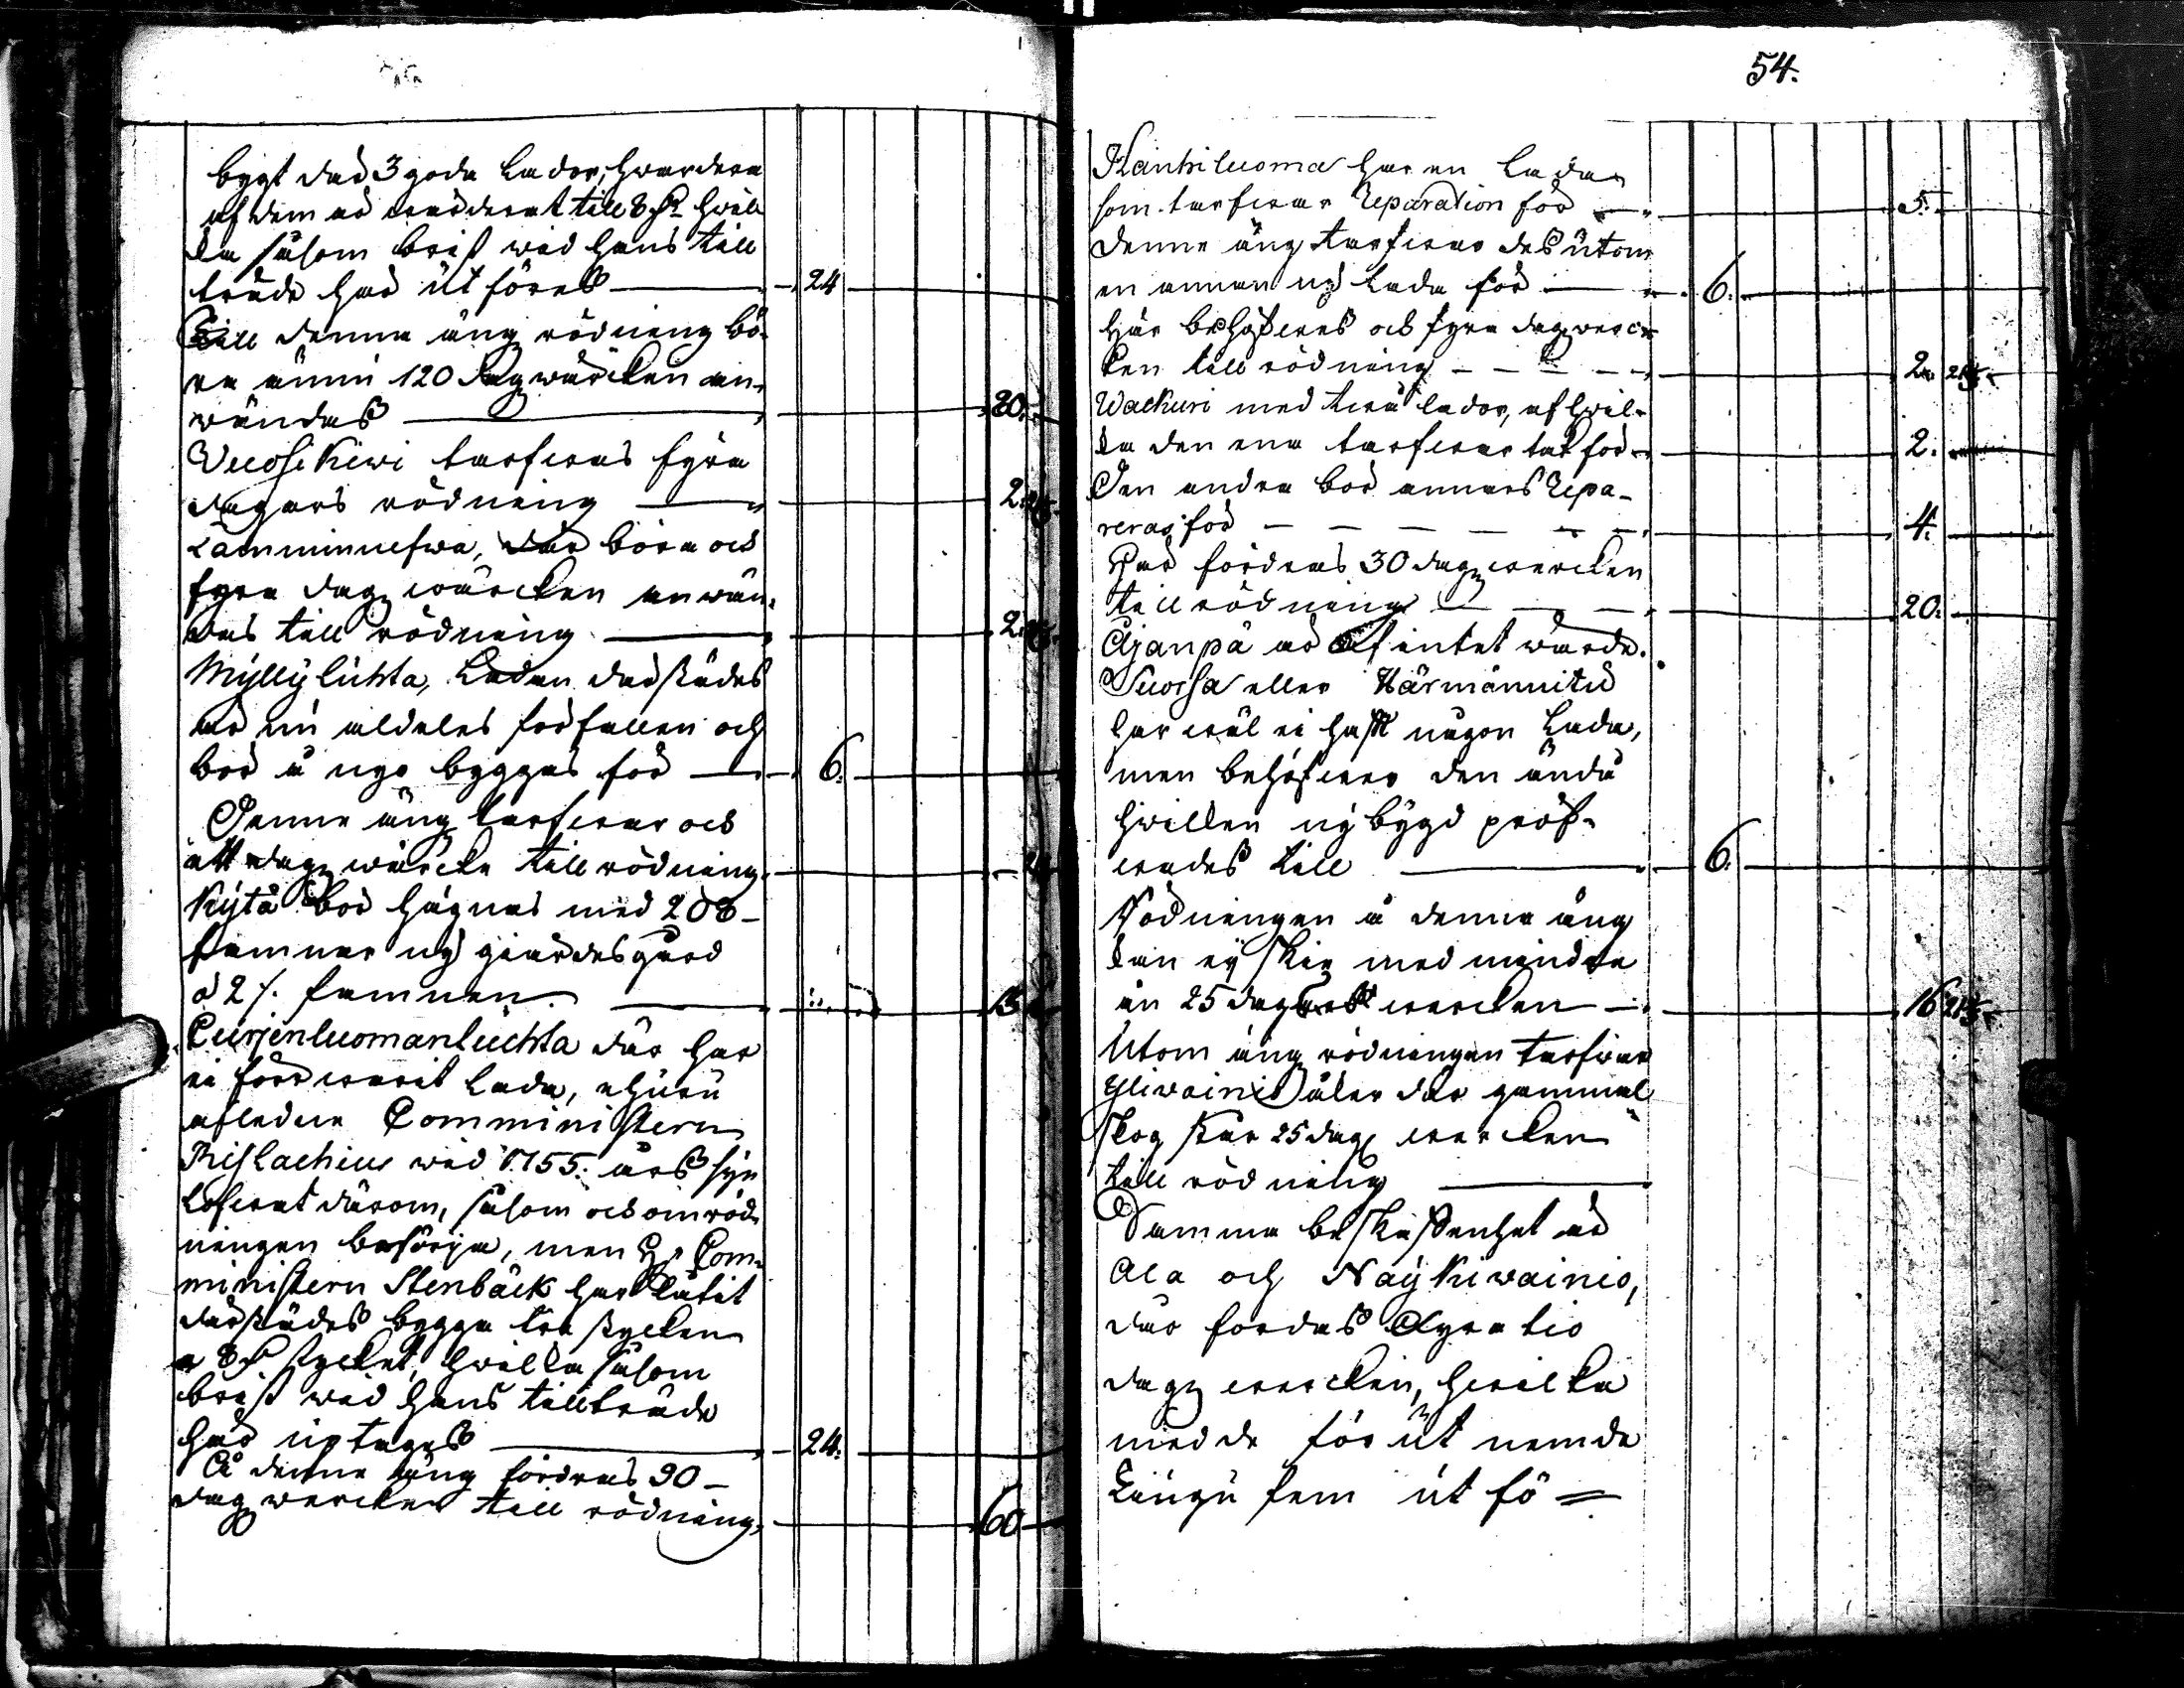 bygt där 3 goda Lador, hwardera
af dem är wärderat till 8 P:r hwil
ka såsom brist wid hans till
träde här utföres — 24
Till denna äng rödning bö-
ra ännu 120 Dagzwärcken an-
wändas — 80.
Vuosikiwi tarfwas fyra
dagars rödning — 2.
Lamminnefwa, där böra ock
fyra dagzwärcken anwän-
das till rödning — 2.
Myllylüchta, Ladan därstädes
är nu aldeles förfallen och
bör å nyo byggas för — 6.
Denna äng tarfwar ock
ått dagzwärcke till rödning.
Kÿtå bör hägnas med 208-
famnar ny giärdesgård
à 2 /. famnen. — 13
Curjenluomanlüchta där har
ei förr warit Lada, ehuru
afledne Comministern
Rislachius wid 1755: års syn
lofwat därom, såsom ock om röd-
ningen besörja, men Hr Com-
ministern Stenbäck har låtit
därstädes bygga tre stycken
a 8 P stycket, hwilka såsom
brist wid hans tillträde
här uptages — 24.
Å denna äng fordras 90-
dagzwercken till rödning, — 60
54.
Kanhiluoma har en Lada
som tarfwar Reparation för — 5.
Denna äng tarfwar dessutom
en annan ny Lada för — 6.
Här behöfwes ock fyra dagzwerc-
ken till rödning — 2. 21 1/3.
Wackuri med twå lador, af hwil-
ka den ena tarfwar tak för — 2.
Den andra bör annars Repa-
reras för — 4.
Här fordras 30 dagzwercken
till rödning — 20.
Ajanpä är af intet wärde.
Suossa eller Härmännitÿ
har wäl ei haft någon Lada,
men behöfwer den ändå
hwilken nybygd pröf-
wades till — 6.
Rödningen å denna äng
kan ey skie med mindre
än 25 dagz wercken — 16 21 1/3.
Utom äng rödningen tarfwar
Yliwainio åker där gammal
skog står 25 dagz wercken
till rödning —
Samma beskaffenhet är
Ala och Naÿkiwainio,
där fordras fyratio
dagz wercken, hwilka
med de förut nemde
tiugu fem ut fö=